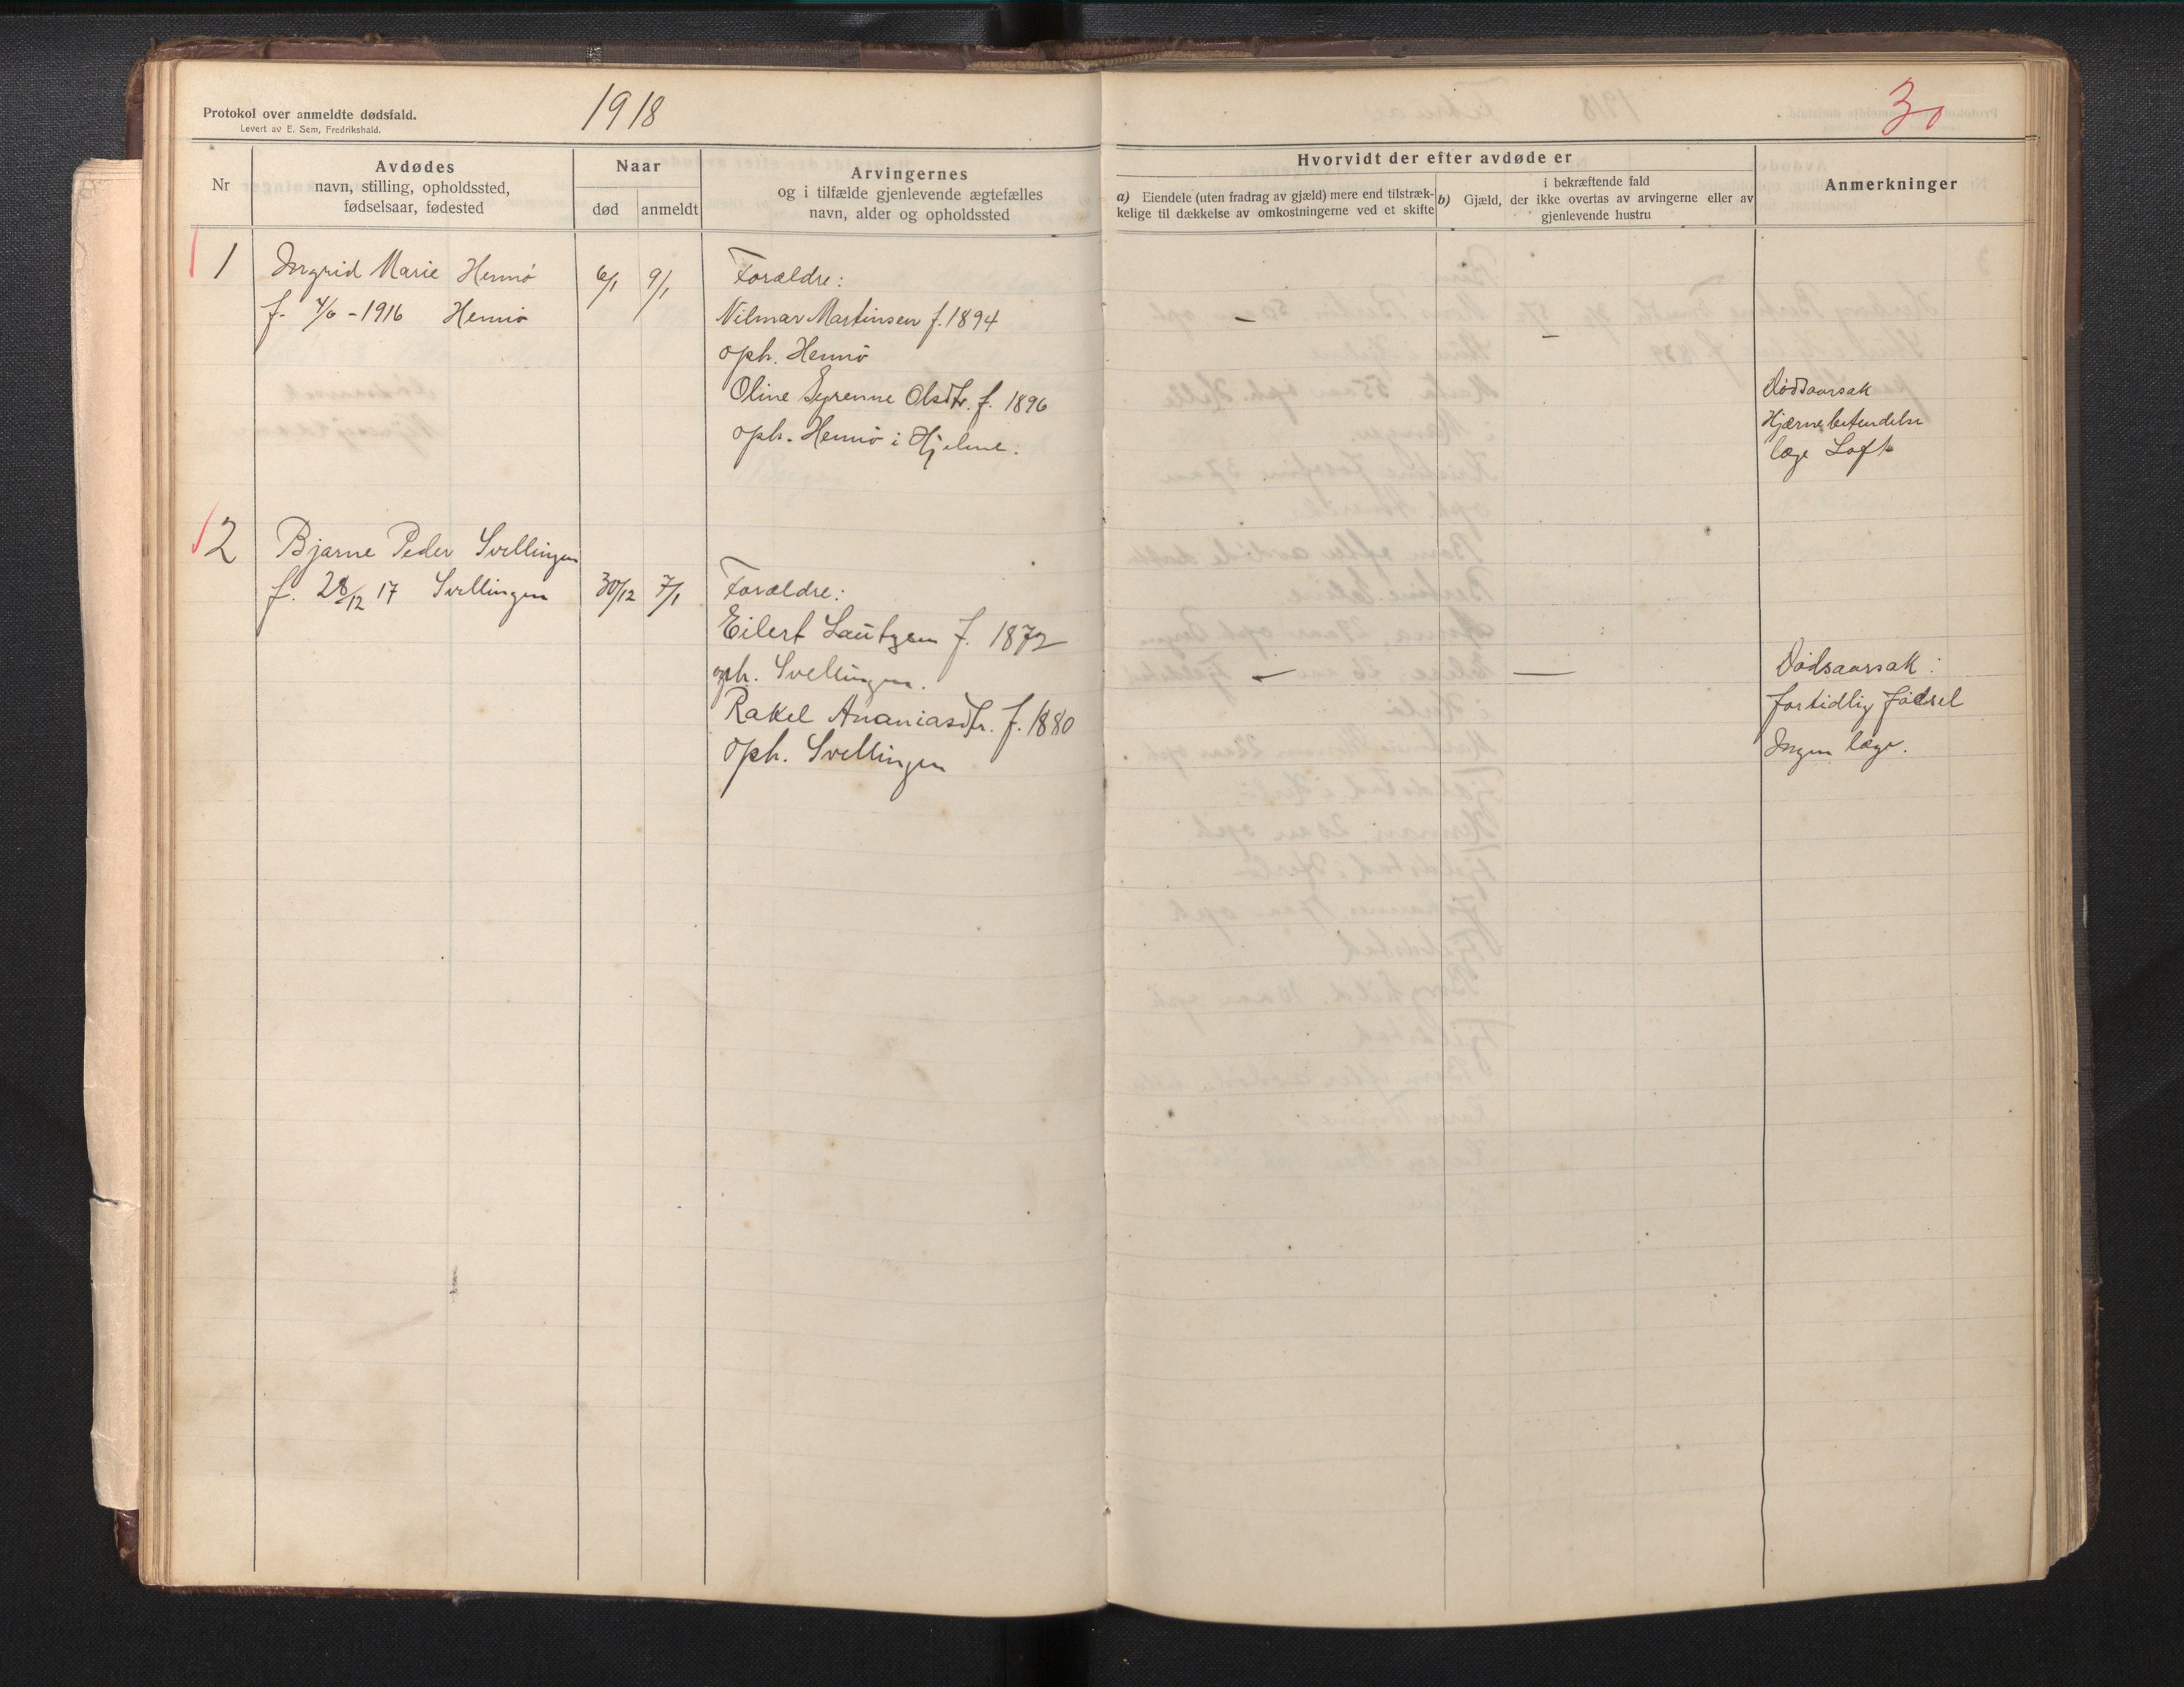 Protokol over anmeldte dødsfald.
Levert av E. Sem, Fredrikshald.
1918
30
Nr
Avdødes
navn, stilling, opholdssted,
fødselsaar, fødested
Naar
død
anmeldt
Arvingernes
og i tilfælde gjenlevende ægtefælles
navn, alder og opholdssted
Hvorvidt der efter avdøde er
a) Eiendele (uten fradrag av gjæld) mere end tilstræk-
kelige til dækkelse av omkostningerne ved et skifte
b) Gjæld, der ikke overtas av arvingerne eller av
i bekræftende fald
gjenlevende hustru
Anmerkninger
1
Ingrid Marie Hennø
f. 4/6 - 1916 Hennø
6/1
9/1
Forældre:
Nilmar Martinsen f. 1894
oph. Hennø
Oline Syrenne Olsdtr. f. 1896
oph. Hennø i Hjelme.
-
-
Dødsaarsak
Hjernebetendelse
læge Loft
2
Bjarne Peder Svellingen
f. 28/12 17 Svellingen
30/12
7/1
Forældre:
Eilert Lauritzen f. 1872
oph. Svellingen.
Rakel Ananiasdtr. f. 1880
oph. Svellingen
-
-
Dødsaarsak:
fortidlig fødsel
Ingen læge.